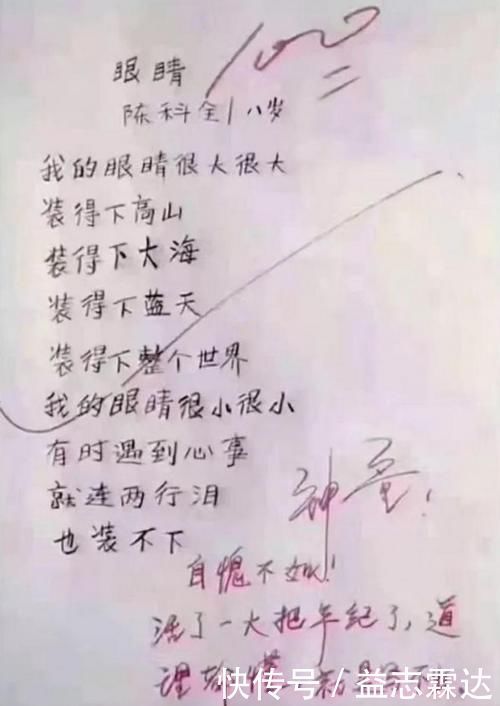 100
眼睛
陈科全/八岁
我的眼睛很大很大
装得下高山
装得下大海
装得下蓝天
装得下整个世界
我的眼睛很小很小
有时遇到心事
就连两行泪
也装不下
神童!
自愧不如!
活了一大把年纪了,道
理
快传号/益志霖达